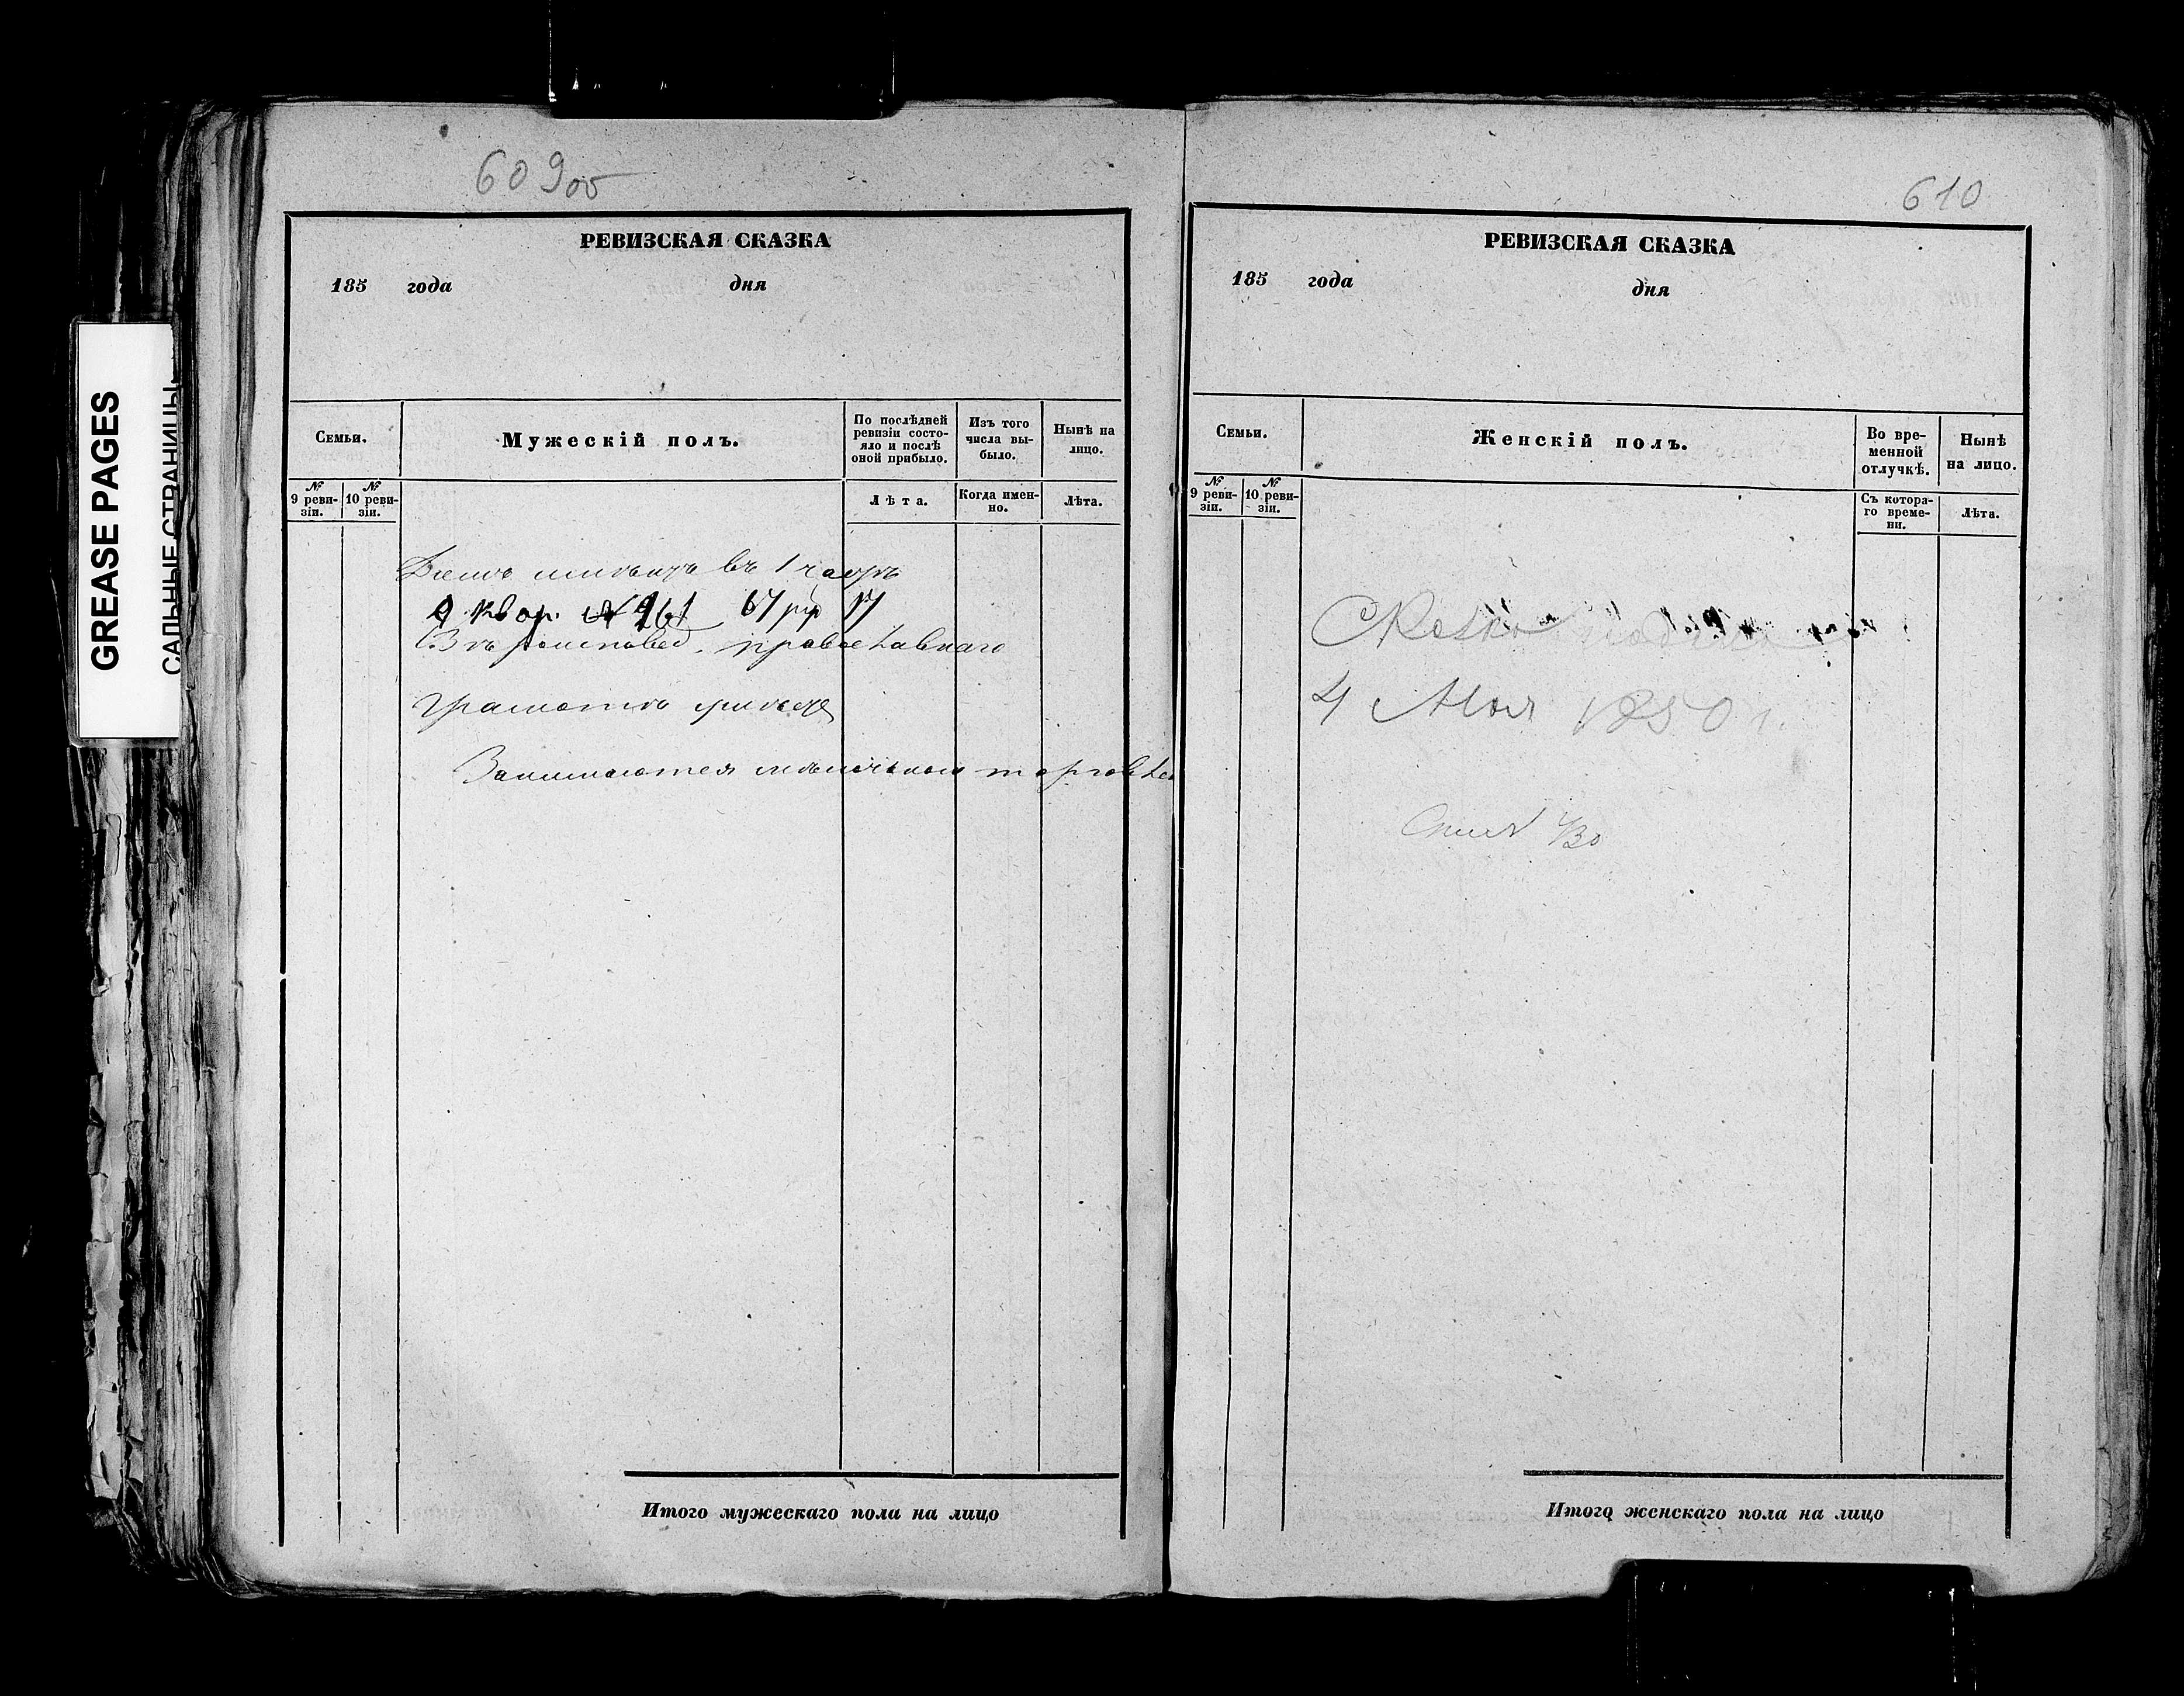 GREASE PAGES
САЛЬНЫЕ СТРАНИЦЫ
609об
РЕВИЗСКАЯ СКАЗКА
185 года дня
Семьи.
Мужескій полъ.
По послѣдней ревизіи состо-
яло и послѣ
оной прибыло.
Изъ того
числа вы-
было.
Нынѣ на
лицо.
№ 9 реви-
зіи.
№ 10 реви-
зіи.
Лѣта.
Когда имен-
но.
Лѣта.
Домъ имѣетъ въ 1 части
квар. № 67 ру
Вѣроисповед. православнаго
Грамотѣ умѣетъ
Занимается мѣлочною торговлею
Итого мужескаго пола на лицо
610
РЕВИЗСКАЯ СКАЗКА
185 года дня
Семьи.
Женскій полъ.
Во вре-
менной
отлучкѣ.
Нынѣ
на лицо.
№ 9 реви-
зіи.
№ 10 реви-
зіи.
Съ котора-
го време-
ни.
Лѣта.
4 Мая 1850 г.
Итого женскаго пола на лицо